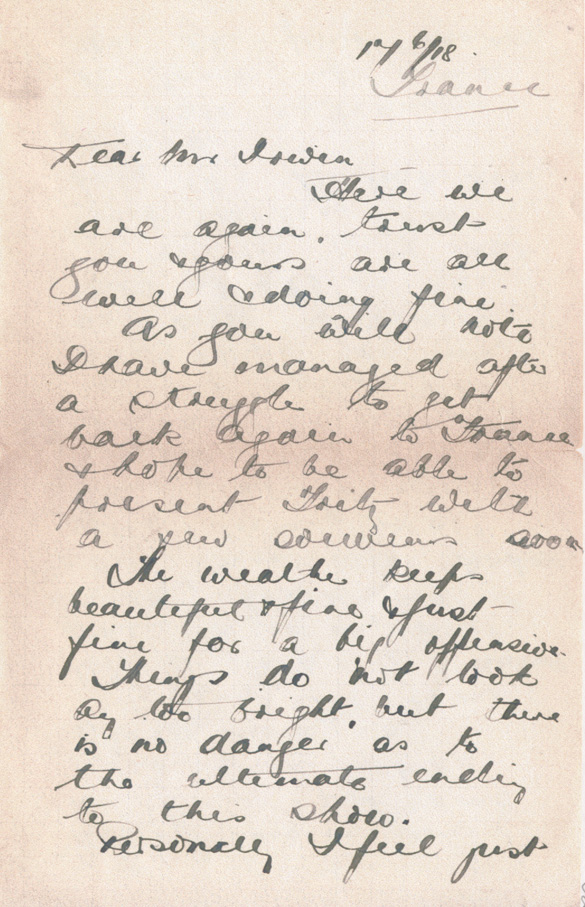 17/6/18
France
Dear Mr
Here we
are again, trust
you & yours are all
well & doing fine.
As you will note
I have managed after
a struggle to get
back again to France
& hope to be able to
present Fritz with
a few souvenirs soon
The weather keeps
beautiful & fine & just
fine for a big offensive.
Things do not look
any too bright, but there
is no danger as to
the ultimate ending
to this show.
Personally I feel just